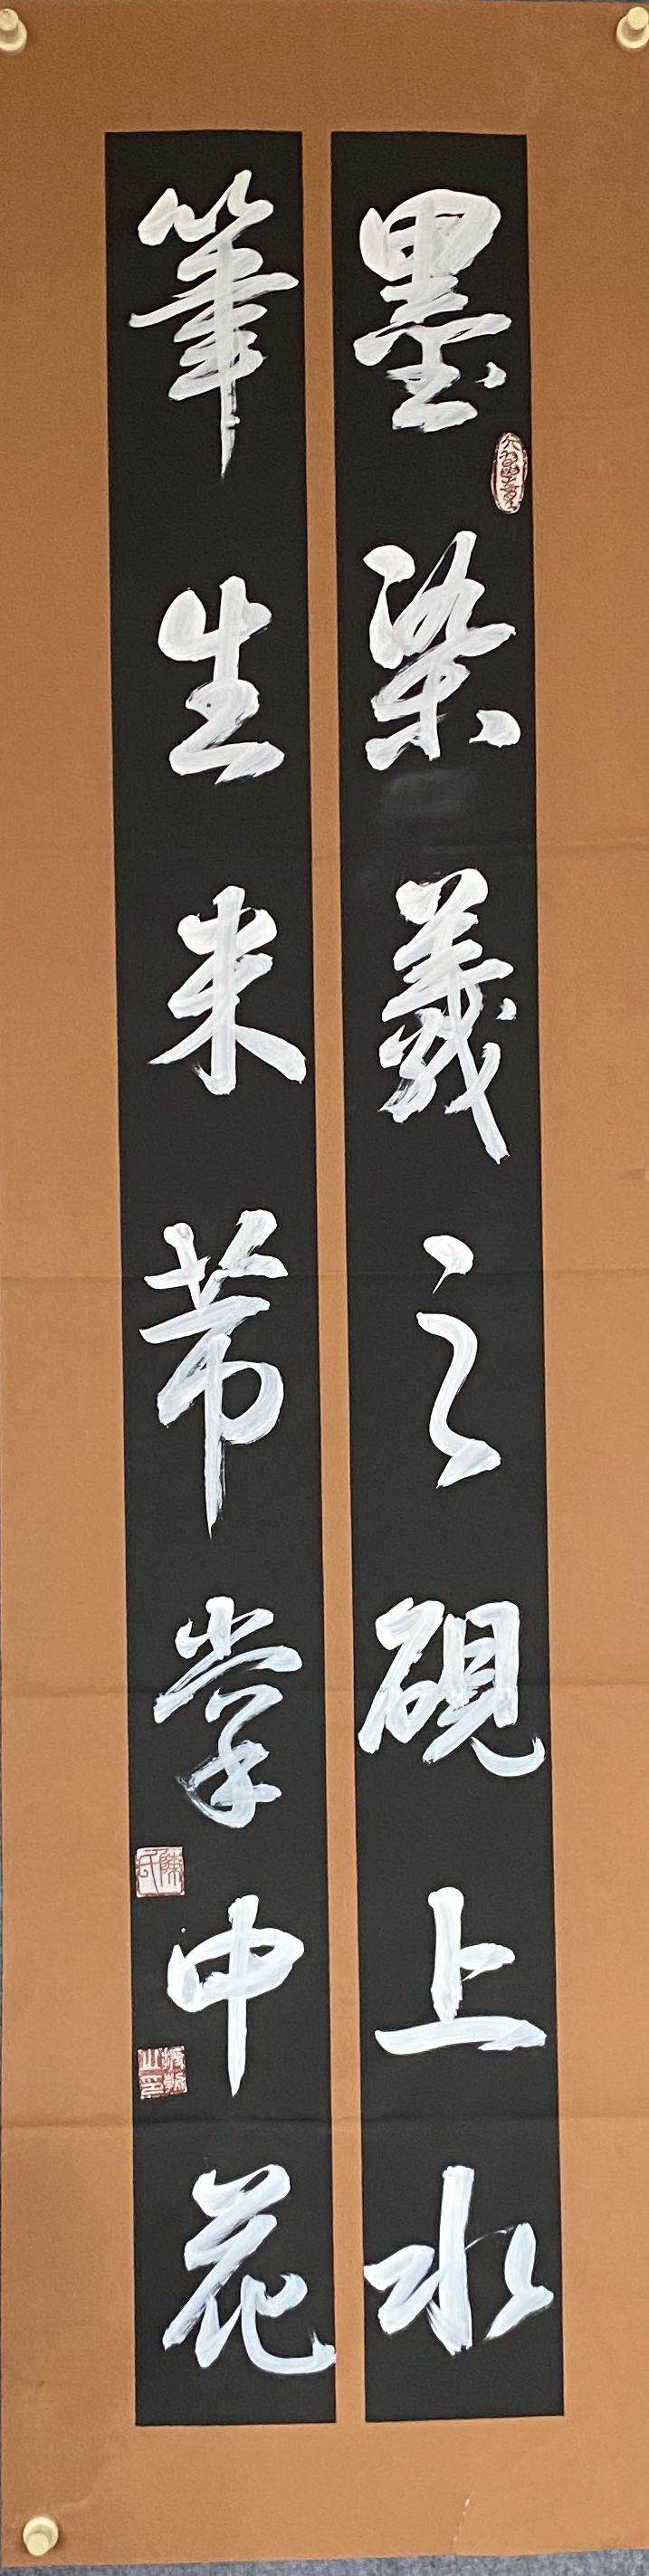 墨染羲之硯上水
筆生米芾掌中花
陳氏